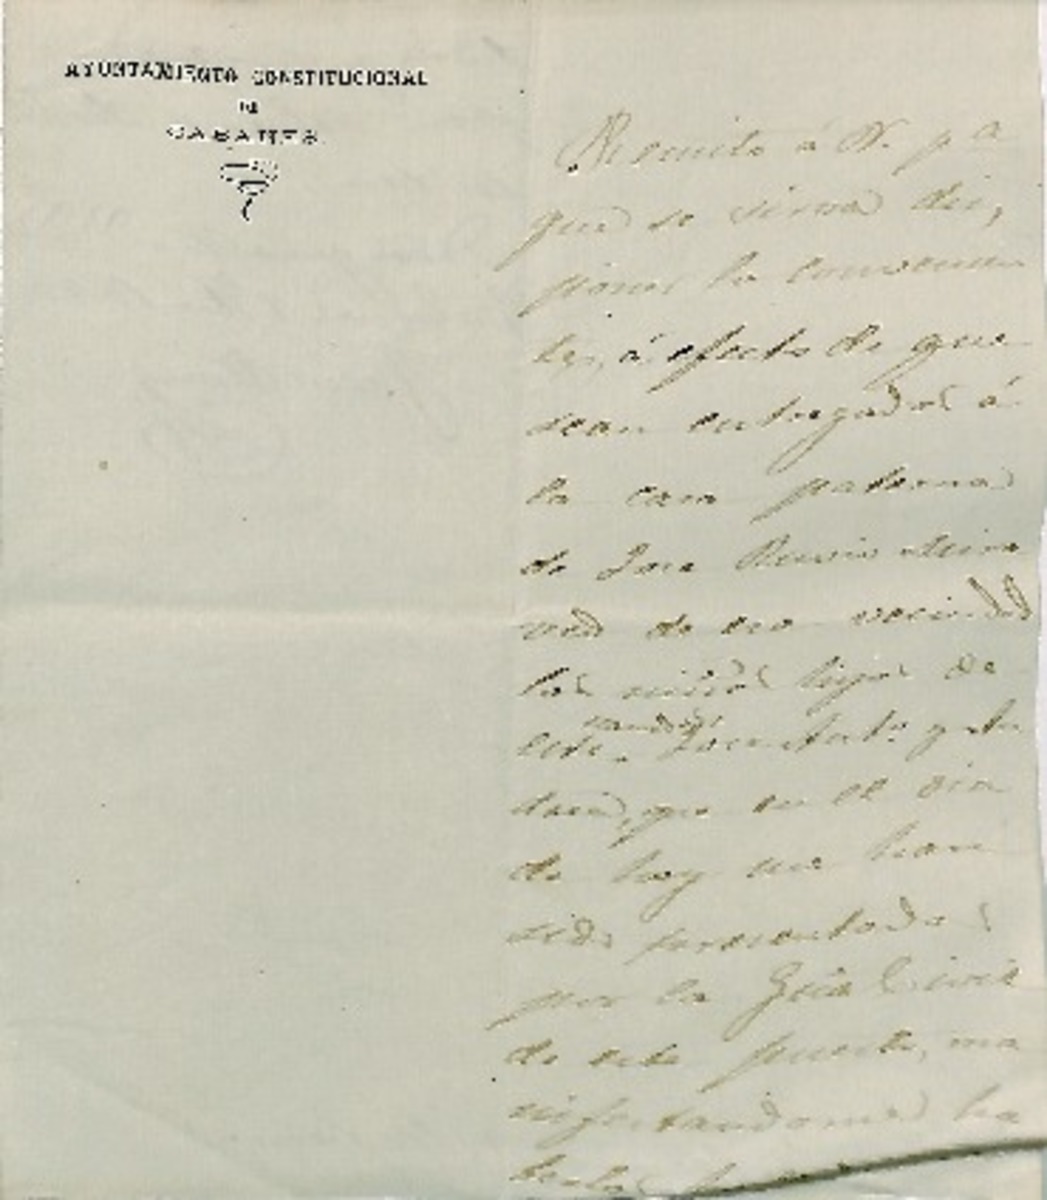 AYUNTAMIENTO CONSTITUCIONAL
DE
CABANES
Remito á V. pª
que se sirva dis,
poner lo convenien
te, á efecto de que
sean entregados á
la casa paterna
de José
de esa vecindad
los niños hijos de
este nombrados
que en el dia
de hoy me han
sido presentados
por la Gûia Civil
de este puesto, ma
nifestandome ha
berlos